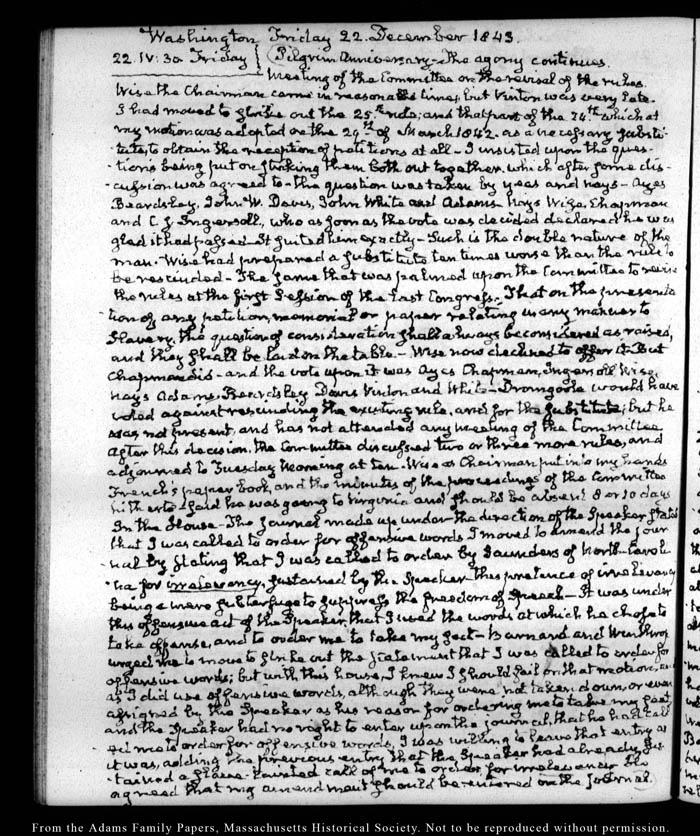 Washington Friday 22. December 1843.
22. IV:30 Friday Pilgrim Anniversary - The agony continues.
Meeting of the Committee on the revisal of the rules.
Wise the Chairman came in reasonable time, but Vinton was very late.
I had moved to strike out the 25th rule, and that part of the 24th which at
my motion was adopted on the 29th of March 1842. as a necessary substi-
tute, to obtain the reception of petitions at all - I insisted upon the ques-
tions being put on striking them both out together, which after some dis-
cussion was agreed to - the question was taken by yeas and nays - Ayes
Beardsley, John W. Davis, John White and Adams - Nays Wise, Chapman
and C. J. Ingersoll, who as soon as the vote was decided declared he was
glad it had passed - It suited him exactly - Such is the double nature of the
man. Wise had prepared a substitute ten times worse than the rule to
be rescinded - The same that was palmed upon the Committee to revise
the rules at the first Session of the last Congress. That on the presenta-
tion of any petition, memorial or paper relating in any manner to
Slavery, the question of consideration shall always be considered as raised,
and they shall be laid on the table. - Wise now declined to offer it - But
Chapman did - and the vote upon it was Ayes Chapman, Ingersoll Wise,
Nays Adams, Beardsley Davis Vinton and White - Dromgoole would have
voted against rescinding the existing rule, and for the substitute; but he
was not present, and has not attended any meeting of the Committee
After this decision, the Committee discussed two or three more rules, and
adjourned to Tuesday Morning at ten. Wise as Chairman put into my hands
French's paper book, and the minutes of the proceedings of the Committee
hitherto. Said he was going to Virginia and should be absent 8 or 10 days
In the House - The Journal made up under the direction of the Speaker stated
that I was called to order for offensive words I moved to amend the Jour-
nal by stating that I was called to order by Saunders of North-Caroli-
na for irrelevancy, sustained by the Speaker - this pretence of irrelevancy
being a mere subterfuge to suppress the freedom of speech - It was under
this offensive act of the Speaker, that I used the words at which he chose to
take offense, and to order me to take my seat - Barnard and Winthrop
urged me to move to strike out the statement that I was called to order for
offensive words; but with this house, I knew I should fail on that motion, and
as I did use offensive words, although they were not taken down, or even
assigned by the Speaker as his reason for ordering me to take my seat,
and the Speaker had no right to enter upon the journal, that he had call-
ed me to order for offensive words, I was willing to leave that entry as
it was, adding the previous entry that the Speaker had already sus-
tained a call of me to order, for irrelevancy. He
agreed that my amendment should be entered on the Journal.
From the Adams Family Papers, Massachusetts Historical Society. Not to be reproduced without permission.